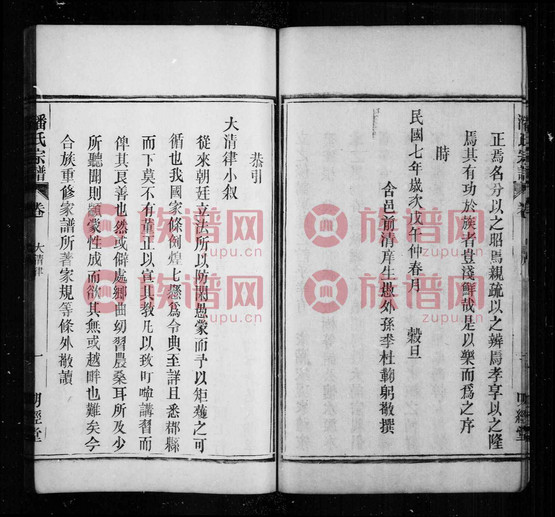 正焉名分以之昭焉親疏以之辨焉孝享以之隆
焉其有功於族者豈淺鮮哉是以樂而為之序
時
民國七年歲次戊午仲春月 穀旦
含邑前清庠生愚外孫李杜蘅躬敬撰
恭引
大清律小叙
從來朝廷立法所以防閑愚蒙而予以矩蒦之可
循也我國家條例煌七懸為令典至詳且悉都縣
而下莫不有董正以宣其教凡以致叮嚀講習而
俾其良善也然或僻處鄉曲幼習農桑耳所及少
所聽聞則顓蒙性成而欲其無或越畔也難矣今
合族重修家譜所著家規等條外敬讀
潘氏宗譜
卷
大清律
一
明經堂
潘氏宗譜
卷
明經堂
族谱网
zupu.cn
族谱网
zupu.cn
族谱网
zupu.cn
族谱网
zupu.cn